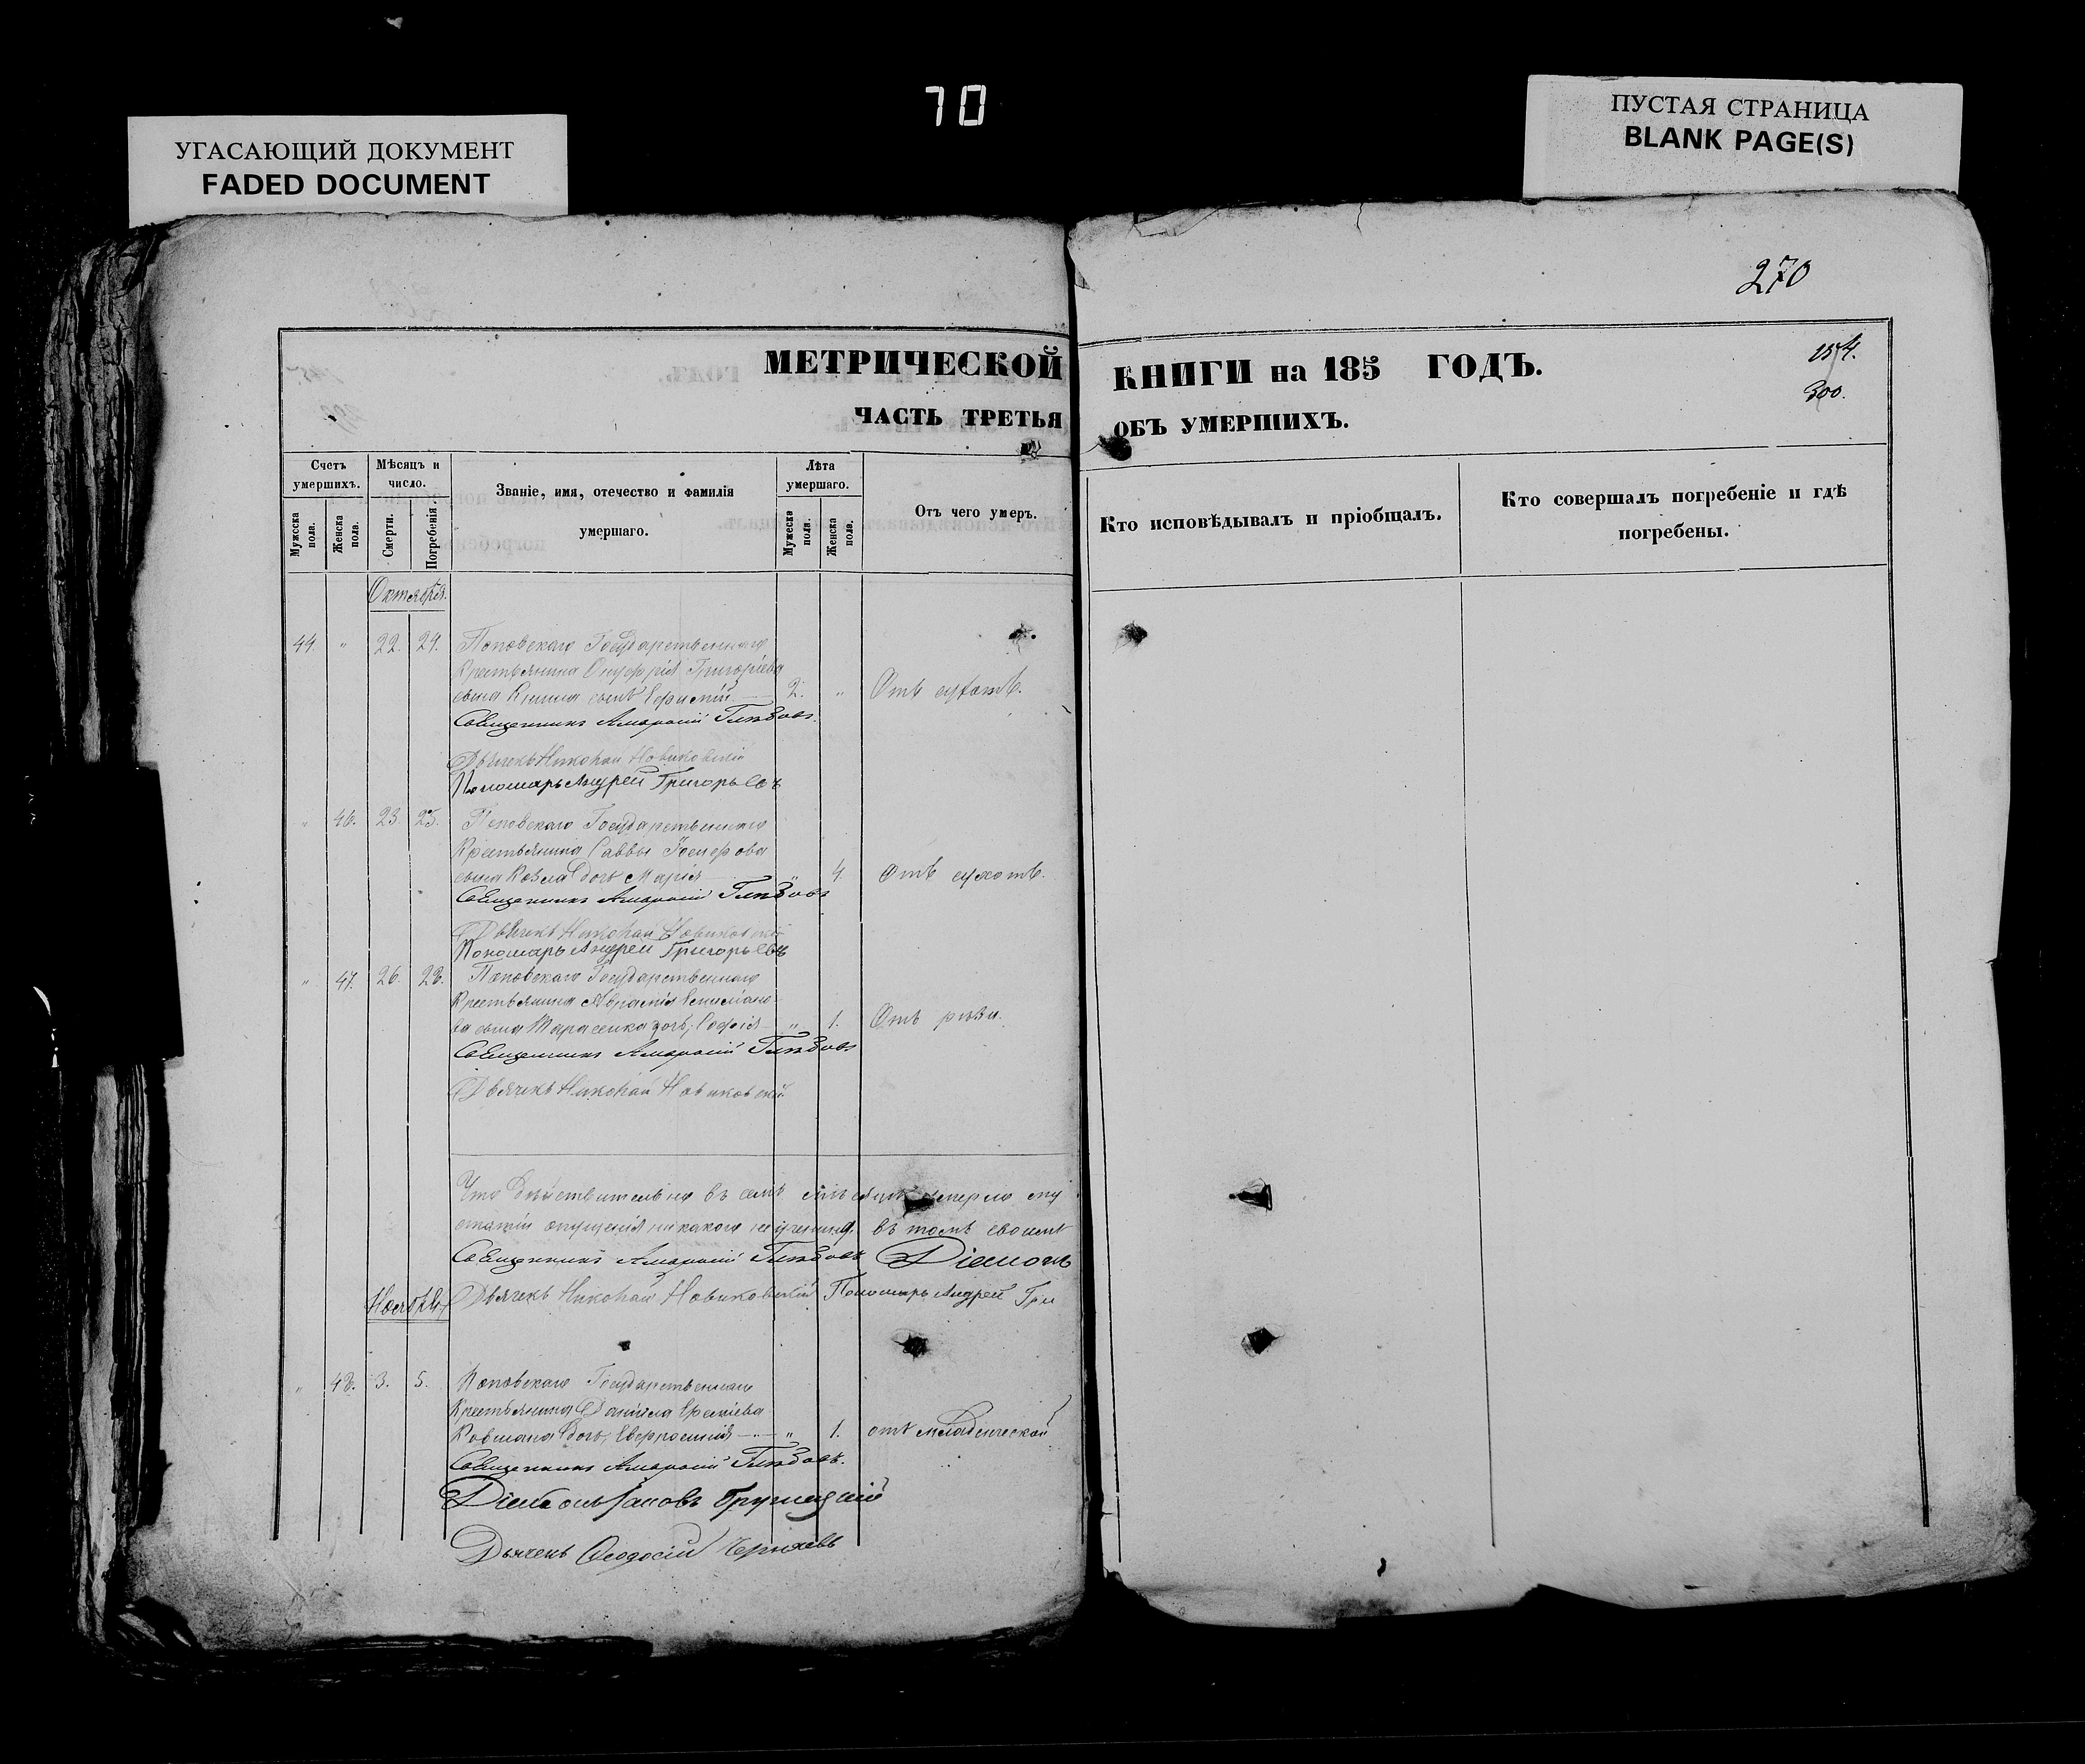 70
УГАСАЮЩИЙ ДОКУМЕНТ
FADED DOCUMENT
ПУСТАЯ СТРАНИЦА
BLANK PAGE(S)
270
МЕТРИЧЕСКОЙ КНИГИ на 185 ГОДЪ.
154.
300.
ЧАСТЬ ТРЕТЬЯ ОБЪ УМЕРШИХЪ.
Счетъ умершихъ.
Мужеска пола.
Женска пола.
Мѣсяцъ и число.
Смерти.
Погребенія.
Званіе, имя, отечество и фамилія
умершаго.
Лѣта умершаго.
Мужеска пола.
Женска пола.
Отъ чего умеръ.
Кто исповѣдывалъ и пріобщалъ.
Кто совершалъ погребеніе и гдѣ
погребены.
Октября.
44. " 22. 24. Поповскаго Государственнаго
Крестьянина Онуфрія Григоріева
сына сынъ Ефимій 2. " Отъ сухотъ.
Священникъ Амвросій
Дьячекъ Николай Новиковскій
Пономарь Андрей Григорьевъ
" 46. 23. 25. Поповскаго Государственнаго
Крестьянина Саввы
сына Козла дочь Марія " 4. Отъ сухотъ.
Священникъ Амвросій
Дьячекъ Николай Новиковскій
Пономарь Андрей Григорьевъ
" 47. 26. 28. Поповскаго Государственнаго
Крестьянина Аврамія
ва сына Тарасенка дочь Софія " 1. Отъ рѣзи.
Священникъ Амвросій
Дьячекъ Николай Новиковскій
Что дѣйствительно въ семъ мѣсяцѣ умерло
опущенія никакого не учинено, въ томъ
Священникъ Амвросій Діаконъ
Дьячекъ Николай Новиковскій Пономарь Андрей Гри
Ноября
" 48. 3. 5. Поповскаго Государственнаго
Крестьянина Даніила
дочь Евфросинія " 1. отъ младенческой
Священникъ Амвросій
Діаконъ Іаковъ
Дьячекъ Ѳеодосій